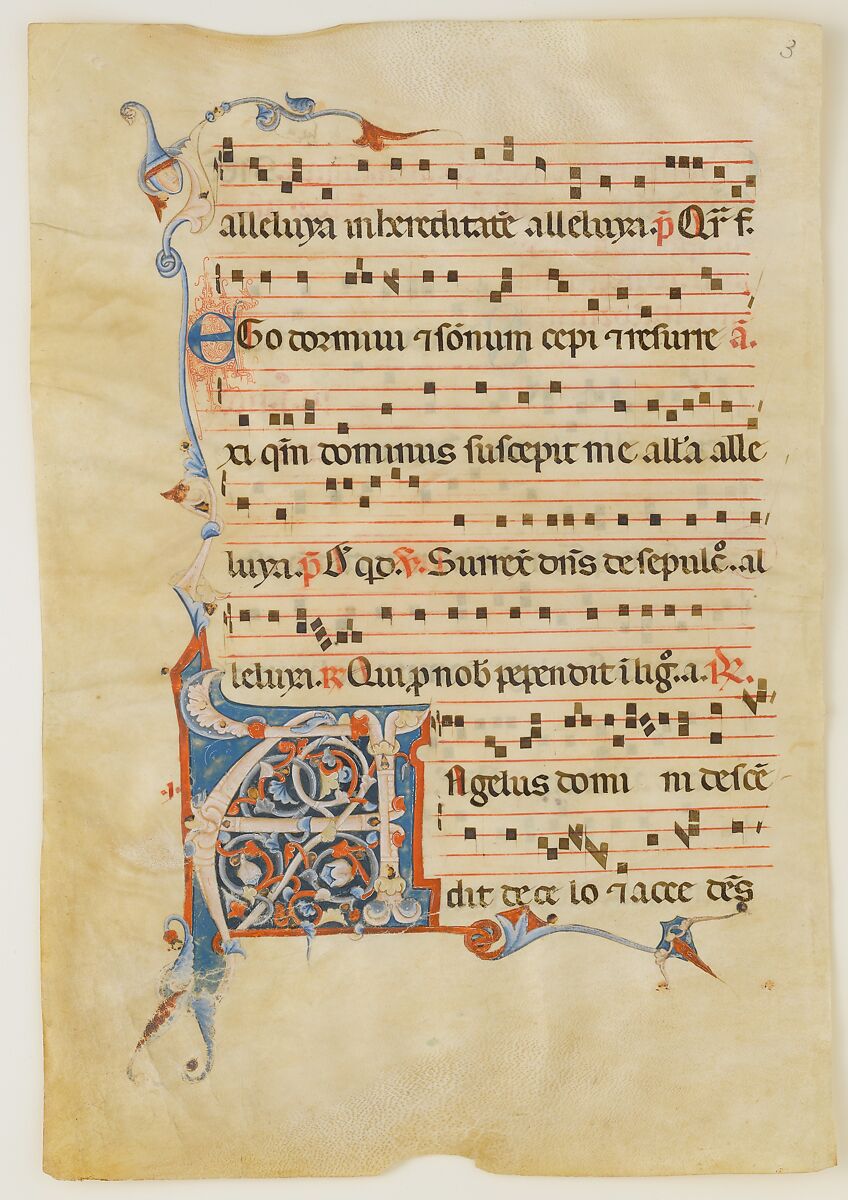 3
alleluya in hereditatē alleluya. p̄ Qr̄ f.
EGo dormiui ⁊ sōnum cepi ⁊ resurre ā.
xi qm̄ dominus suscepit me all'a alle
luya. p̄ qd. Surrex̄ dn̄s de sepulc̄o. al
leluya. R Qui p nob pependit ī lig̊. a. R.
Angelus domi ni descē
dit de ce lo ⁊ acce dēs